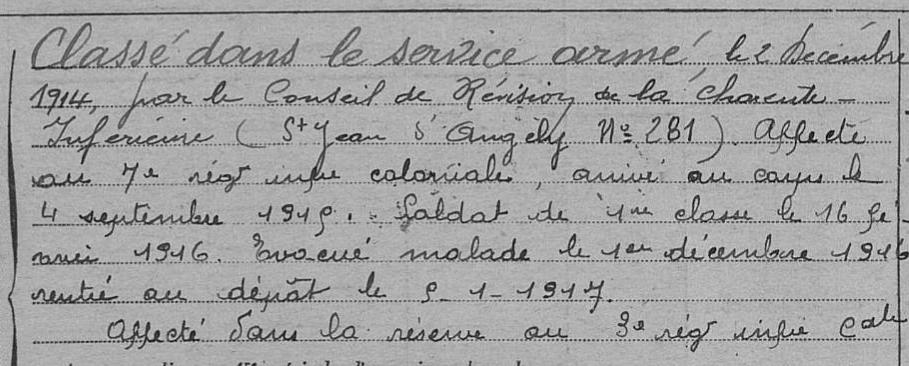 Classé dans le service armé le 2 Décembre
1914, par le Conseil de Révision de la Charente-
Inférieure (St Jean d'Angély No 281). Affecté
au 7e régt infie coloniale, arrivé au corps le
4 septembre 1915. Soldat de 1re classe le 16 fé-
vrier 1916. Evacué malade le 1er décembre 1916
rentré au dépôt le 5-1-1917.
Affecté dans la réserve au 3e régt infie Cale